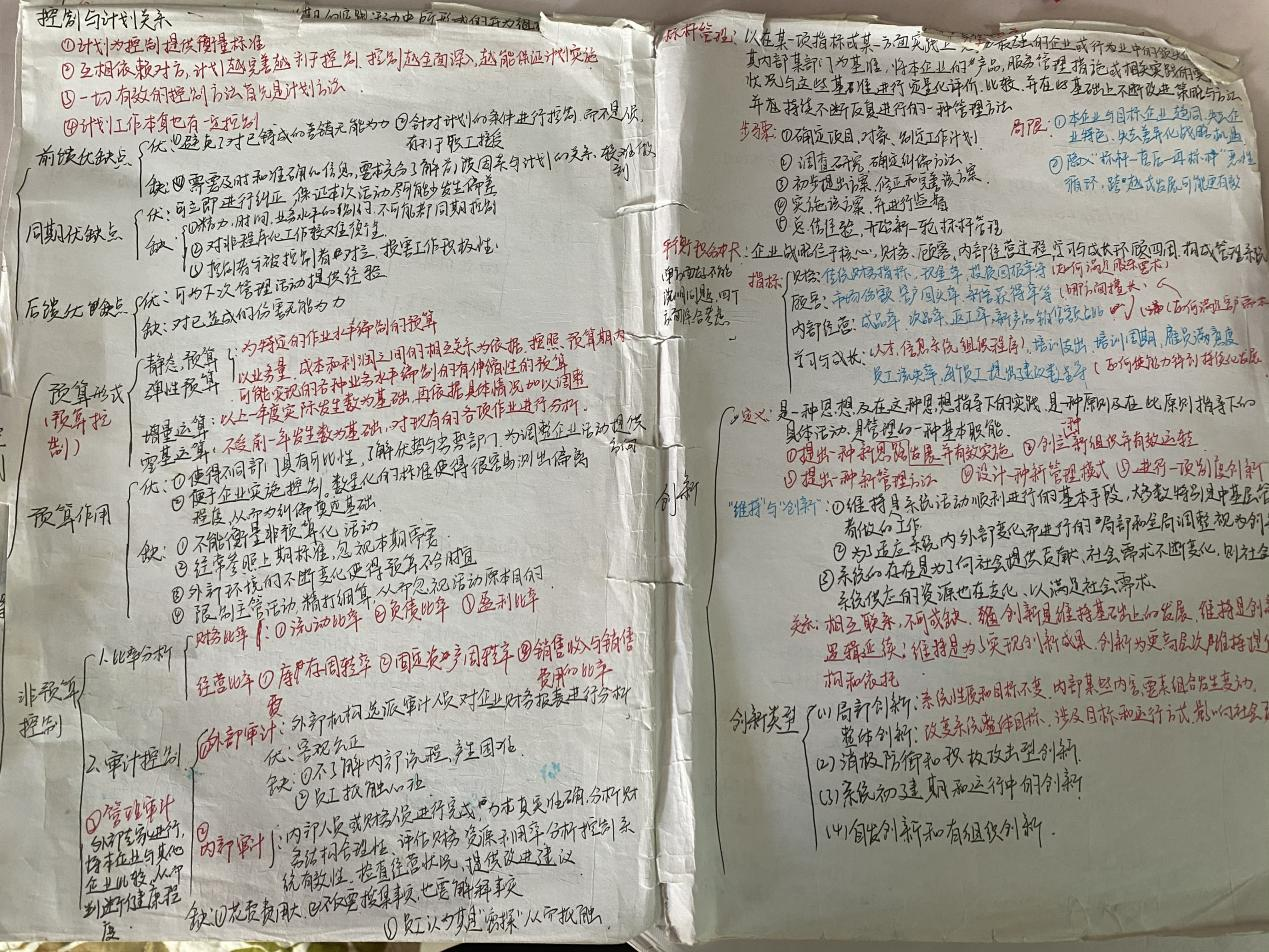 控制与计划关系
①计划为控制提供衡量标准
②互相依赖对方,计划越完善越利于控制,控制越全面深入,越能保证计划实施
③一切有效的控制方法首先是计划方法
④计划工作本身也有一定控制
前馈优缺点
优:①避免了对已铸成的差错无能为力 ②针对计划的条件进行控制,而不是人,
有利于职工接受
缺:需要及时和准确的信息,需求充分了解前馈因素与计划的关系,较难做到
同期优缺点
优:可立即进行纠正,保证本次活动尽可能少发生偏差
缺
①精力,时间,业务水平的制约,不可能都同期控制
②对非程序化工作较难管控
③控制者与被控制者对立,损害工作积极性
后馈优缺点
优:可为下次管理活动提供经验
缺:对已造成的伤害无能为力
预算形式
(预算控制)
静态预算:为特定的作业水平编制的预算
弹性预算
以业务量,成本和利润之间的相互关系为依据,按照,预算期内
可能实现的各种业务水平编制的有伸缩性的预算
增量运算:以上一年度实际发生数为基础,再依据具体情况加以调整
零基运算:不受前一年发生数为基础,对现有的各项作业进行分析.
预算作用
优:①使得不同部门具有可比性,了解优势与劣势部门,为调整企业活动提供方向
②便于企业实施控制。数字化的标准使得很容易测出偏离
程度,从而为纠偏奠定基础
缺:①不能衡量非预算化活动
②经常参照上期标准,忽视本期需要
③外部环境的不断变化使得预算不合时宜
④限制主管活动,精打细算,从而忽视活动原本目的.
非预算控制
1.比率分析
财务比率:①流动比率 ②负债比率 ③盈利比率
经营比率 ①库存周转率 ②固定资产周转率 ③销售收入与销售
费用的比率
2.审计控制
①外部审计:外部机构选派审计人员对企业财务报表进行分析
优:客观公正
缺:①不了解内部流程,产生困难.
②员工抵触心理
②内部审计:内部人员或财务人员进行完成,为本真实准确,分析财
务结构合理性,评估财务资源利用率,分析控制系
统有效性,检查经营状况,提供改进建议
缺:①花费费用大,②不仅要搜集事实,也要解释事实
③员工认为其是"密探"从而抵触
③管理审计
外部专家进行,
将本企业与其他
企业比较,从而
判断健康程
度.
标杆管理:以在某一项指标或某一方面实践上竞争力最强的企业或行业中的领先企业或
其内部某部门为基准,将本企业的产品,服务管理措施或相关实践的实际
状况与这些基准进行定量化评价,比较,并在此基础上不断改进策略与方法
并在持续不断反复进行的一种管理方法
步骤:①确定项目,对象,制定工作计划
②调查研究,确定纠偏方法
③初步提出方案,修正和完善该方案.
④实施该方案,并进行监督
⑤总结经验,开始新一轮标杆管理
局限:①本企业与目标企业趋同,失去企
业特色,失去差异化战略机遇
②陷入"标杆—落后—再标杆"恶性
循环,跨越式发展可能更有效
平衡积分卡:企业战略位于核心,财务,顾客,内部经营过程,学习与成长环顾四周,构成管理系统
单方面不能
说明问题,四个
方面综合考虑
指标
财务:传统财务指标,现金率,投资回报率等(如何满足股东需求)
顾客:市场份额,客户回头率,新客获得率等(哪方面擅长)
内部经营:成品率,次品率,返工率,新产品销售额占比
学习与成长:(人才,信息系统,组织程序),培训支出,培训周期,雇员满意度
员工流失率,每个员工提出建议数量等(如何使能力得到持续化发展)
创新
定义:是一种思想及在这种思想指导下的实践,是一种原则及在此原则指导下的
具体活动,是管理的一种基本职能.
①提出一种新思路发展并有效实施 ②创立新组织并有效运转
③提出一种新管理方法 ④设计一种新管理模式 ⑤进行一项制度创新
"维持"与"创新":①维持是系统活动顺利进行的基本手段,大多数特别是中基层管
者做的工作.
②为了适应系统内外部变化而进行的局部和全局调整视为创新
③系统的存在是为了向社会提供贡献,社会需求不断变化,则社会
系统供应的资源也在变化,以满足社会需求.
关系:相互联系,不可或缺,创新是维持基础上的发展,维持是创新
逻辑延续;维持是为了实现创新成果,创新为更高层次维持提供
构和依托
创新类型
(1)局部创新:系统性质和目标不变,内部某些内容,要素组合发生变动.
整体创新:改变系统整体目标,涉及目标和运行方式,影响社会
(2)消极防御和积极攻击型创新.
(3)系统初建期和运行中的创新
(4)自发创新和有组织创新.